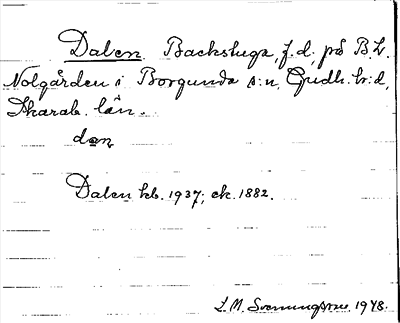 Dalen Backstuga, f.d., på B.L.
Nolgården i Borgunda s:n, Gudh. h:d,
Skarab. län.
dan
Dalen kb. 1937; ek. 1882.
L. M. Svenungsson 1948.